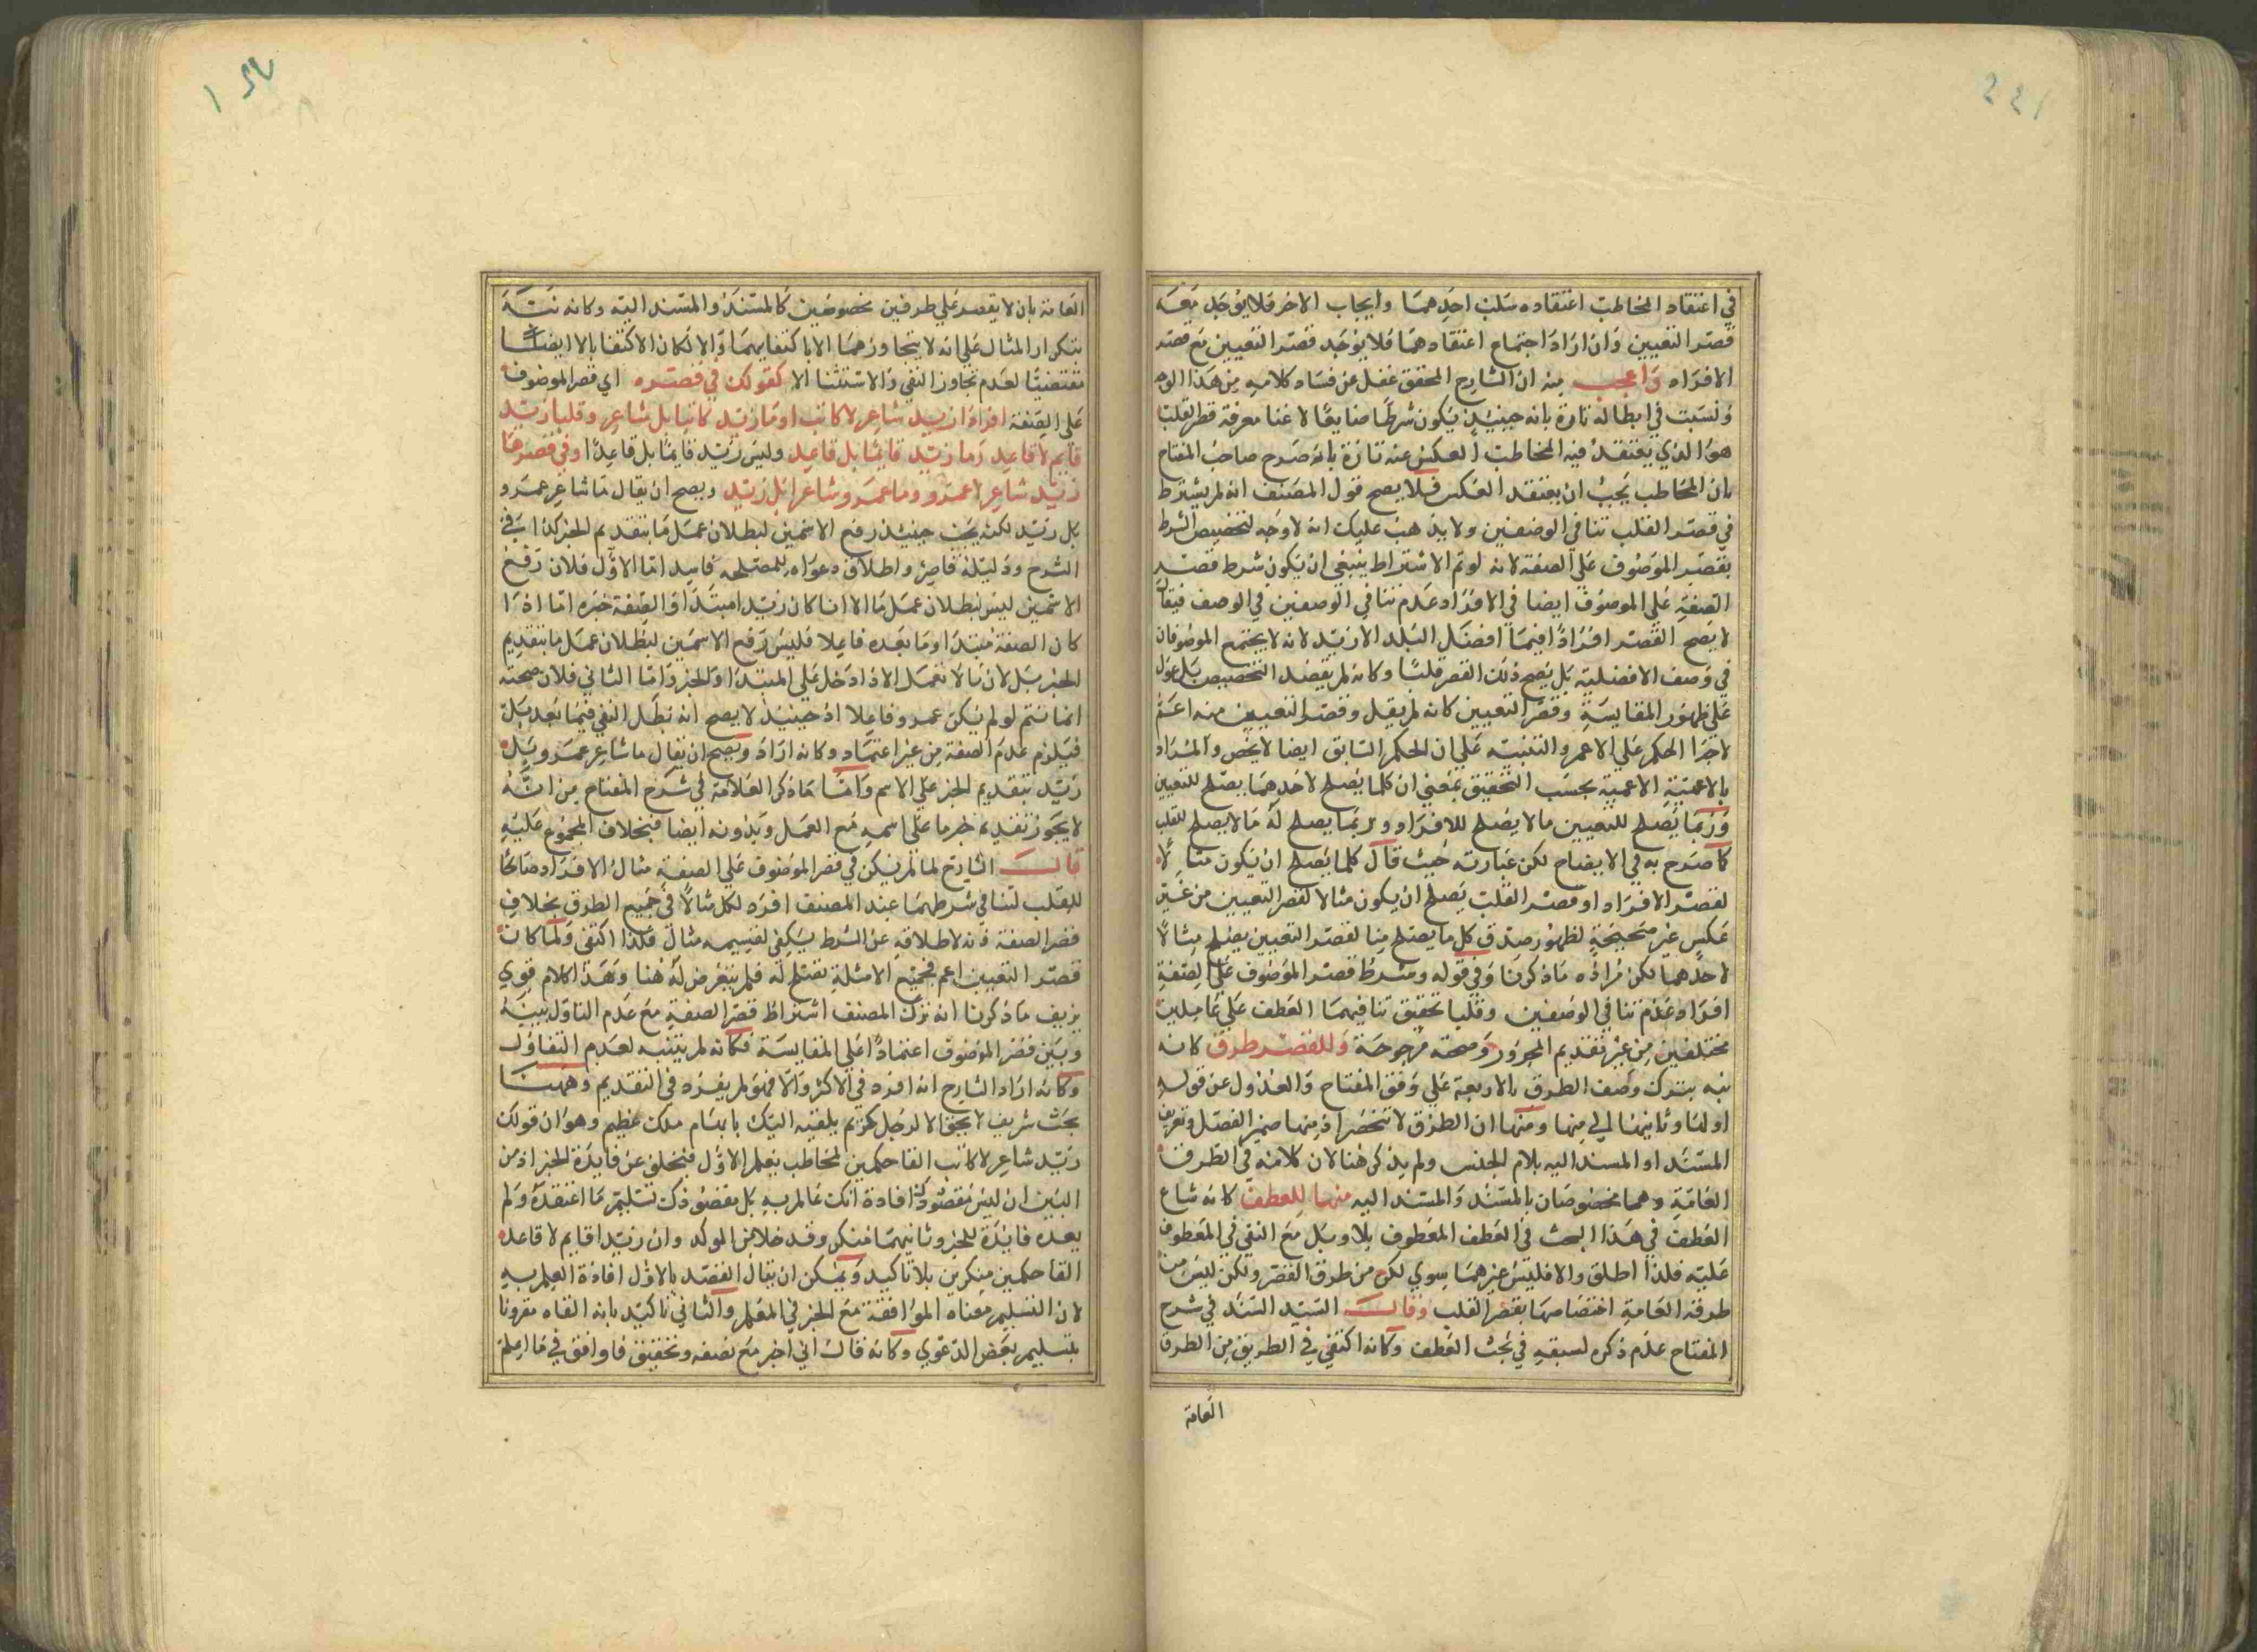 في اعتقاد المخاطب اعتقاده سلب احدهما وايجاب الاخر فلا يوجد معه
قصر التعيين وان اراد اجتماع اعتقادهما فلا يوجد قصر التعيين مع قصر
الافراد واعجب منه ان الشارح المحقق غفل عن فساد كلامه من هذا الوجه
في ابطاله تارة بانه حينئذ يكون شرطا ضايعا لاغنا معرفة قصر القلب
هو الذي يعتقد فيه المخاطب العكس عنه تارة بانه صرح صاحب المفتاح
بان المخاطب يجب ان يعتقد العكس فلا يصح قول المصنف انه لم يشترط
في قصر القلب تنافي الوصفين ولا يذهب عليك انه لا وجه لتخصيص الشرط
بقصر الموصوف على الصفة لانه لو تم الاشتراط ينبغي ان يكون شرط قصر
الصفة على الموصوف ايضا في الافراد عدم تنافي الوصفين في الوصف فيقال
لا يصح القصر افرادا فيما افضل البلد الا زيد لانه لا يجتمع الموصوفان
في وصف الافضلية بل يصح ذلك القصر قلبا وكانه لم يقصد التخصيص بل عول
على ظهور المقايسة وقصر التعيين كانه لم يقل وقصر التعيين منه اعم
لاجرا الحكم على الاعم والتنبيه على ان الحكم السابق ايضا لا يخص والمراد
بالاعمية الاعمية بحسب التحقيق بمعني ان كلما يصلح لاحدهما يصلح للتعيين
وربما يصلح للتعيين ما لا يصلح للافراد وربما يصلح له ما لا يصلح للقلب
كما صرح به في الايضاح لكن عبارته حيث قال كلما يصلح ان يكون مثالا
لقصر الافراد او قصر القلب يصلح ان يكون مثالا لقصر التعيين من غير
عكس غير صحيحة لظهور صدق كل ما يصلح منا لقصر التعيين يصلح مثالا
لاحدهما لكن مراده ما ذكرنا وفي قوله وشرط قصر الموصوف على الصفة
افراد عدم تنافي الوصفين وقلبا تحقيق تنافيهما العطف على عاملين
مختلفين من غير تقديم المجرور وصحته مرجوحة وللقصر طرق كانه
نبه بترك وصف الطرق بالاربعة على وفق المفتاح والعدول عن قوله
اولها وثانيها الى منها ومنها ان الطرق لا تنحصر اذ منها ضمير الفصل وتعريف
المسند او المسند اليه بلام الجنس ولم يذكر هنا لان كلامه في الطرق
العامة وهما مخصوصان بالمسند والمسند اليه منها للعطف كانه شاع
العطف في هذا البحث في العطف المعطوف بلا وبل مع النفي في المعطوف
عليه فلذا اطلق والا فليس غيرهما سوي لكن من طرق القصر ولكن ليس من
طرقه العامة اختصاصها بقصر القلب وقال السيد السند في شرح
المفتاح عدم ذكره لسبقه في بحث العطف وكانه اكتفي في الطريق من الطرق
العامة
العامة بان لا يقصر على طرفين مخصوصين كالمسند والمسند اليه وكانه نبه
بتكرار المثال على انه لا يتجاوزهما الا باكتفا بهما والا لكان الاكتفا بالا ايضا
مقتضيا لعدم تجاوز النفي والاستثنا الا كقولك في قصره اي قصر الموصوف
على الصفة افرادا زيد شاعر لا كاتب او ما زيد كاتبا بل شاعر وقلبا زيد
قايم لا قاعد وما زيد قايما بل قاعد وليس زيد قايما بل قاعدا وفي قصرها
زيد شاعر لا عمرو وما عمرو شاعرا بل زيد ويصح ان يقال ما شاعر عمرو
بل زيد لكنه يجب حينئذ رفع الاسمين لبطلان عمل ما بتقديم الخبر كذا في
الشرح ودليله قاصر واطلاق دعواه للمصلحه فاسد اما الاول فلان رفع
الاسمين ليس لبطلان عمل ما الا اذا كان زيد مبتدا والصفة خبره اما اذا
كان الصفة مبتدا وما بعده فاعلا فليس رفع الاسمين لبطلان عمل ما بتقديم
الخبر بل لان ما لا تعمل الا اذا دخل على المبتدا والخبر واما الثاني فلان صحته
انما تتم لو لم يكن عمرو فاعلا اذ حينئذ لا يصح انه بطل النفي فيما بعد بل
فيلزم عدم الصفة من غير اعتماد وكانه اراد ويصح ان يقال ما شاعر عمرو بل
زيد بتقديم الخبر على الاسم واما ما ذكر العلامة في شرح المفتاح من انه
لا يجوز تقديم خبر ما على اسمه مع العمل وبدونه ايضا فبخلاف المجموع عليه
قال الشارح لما لم يكن في قصر الموصوف على الصفة مثال الافراد صالحا
للقلب لتنافي شرطهما عند المصنف افرد لكل مثالا في جميع الطرق بخلاف
قصر الصفة فانه لاطلاقه عن الشرط يكفي لقسيمه مثال فلذا اكتفى ولما كان
قصر التعيين اعم فجميع الامثلة تصلح له فلم يتعرض له هنا وهذا الكلام قوي
يزيف ما ذكرنا انه ترك المصنف اشتراط قصر الصفة مع عدم التاول بينه
وبين قصر الموصوف اعتمادا على المقايسة فكانه لم يتنبه لعدم التفاؤل
وكانه اراد الشارح انه افرده في الاكثر والا فهو لم يفرده في التقديم وههنا
بحث شريف لا يحق الا لرجل كريم يلقيه اليك بابسام ملك عظيم وهو ان قولك
زيد شاعر لا كاتب القا حكمين لمخاطب يعلم الاول فيخلو عن فايدة الخبر اذ من
البين ان ليس مقصودك افادة انك عالم به بل مقصودك تسليم ما اعتقده ولم
يعده فايدة للخبر وثانيهما منكر وقد خلا عن الموكد وان زيدا قايم لا قاعد
القا حكمين منكرين بلا تاكيد ويمكن ان يقال القصد بالاول افادة العلم به
لان التسليم معناه الموافقة مع الخبر في المعلم والثاني تاكيد بانه القاه مقرونا
بتسليم بعض الدعوي وكانه قال اني اخبر مع نصفه وتحقيق فاوافق في ما اعلم